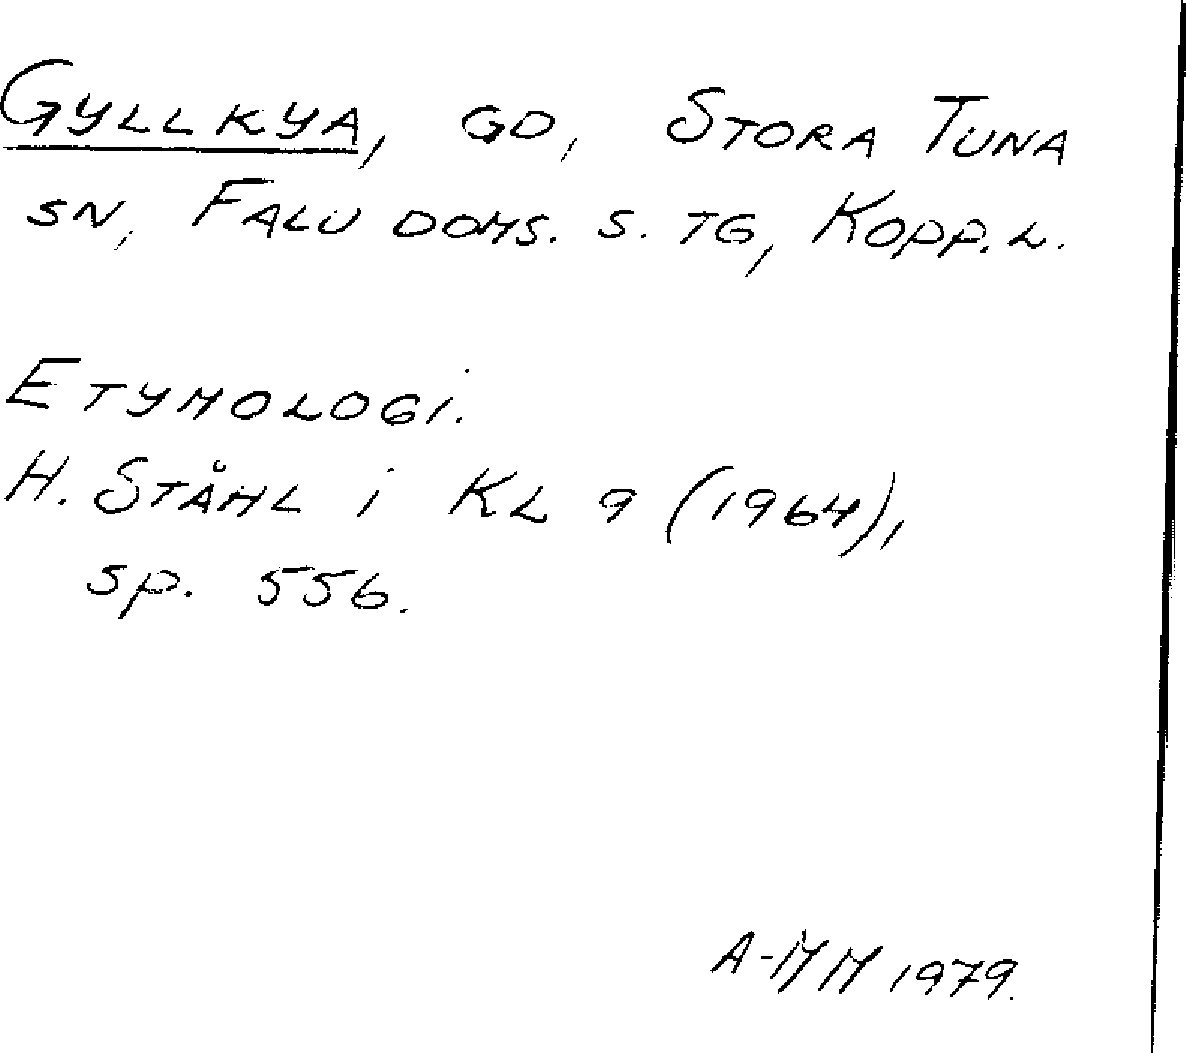 GYLLKYA, GD, STORA TUNA
SN, FALU DOMS. S. TG, KOPP. L.
ETYMOLOGI.
H. STÅHL i KL 9 (1964),
sp. 556.
A-MM 1979.